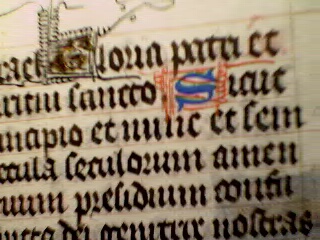 Gloria patri et
ritui sancto Sicut
incipio et nunc et sem
ecula seculorum amen
uum presidium confu
ancta dei genitrix nostras